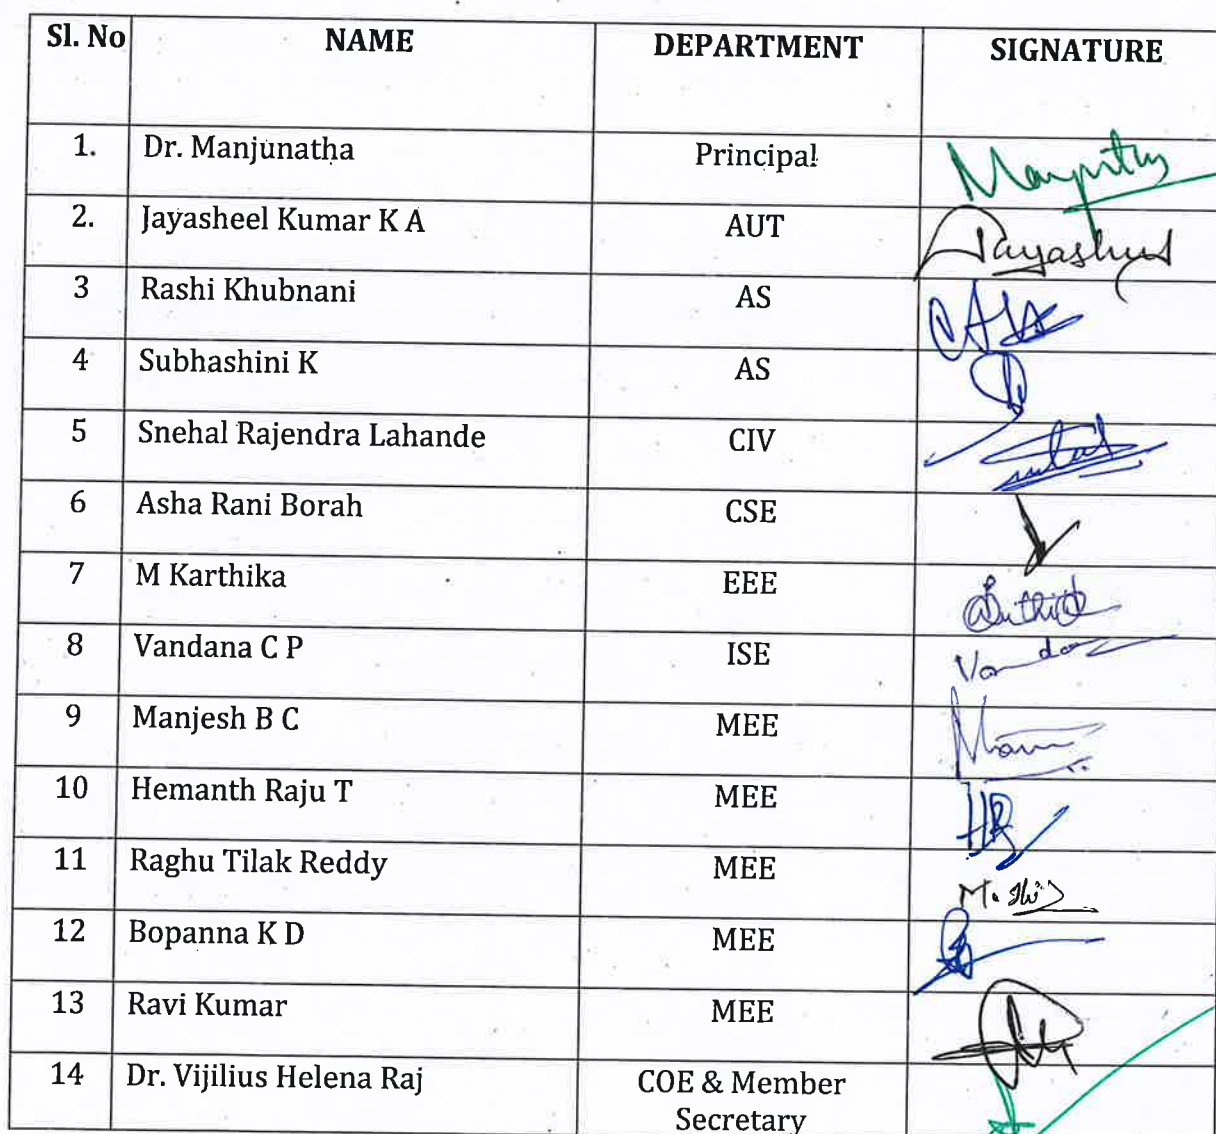 Sl. No NAME DEPARTMENT SIGNATURE
1. Dr. Manjunatha Principal
2. Jayasheel Kumar K A AUT Jayasheel
3 Rashi Khubnani AS
4 Subhashini K AS
5 Snehal Rajendra Lahande CIV
6 Asha Rani Borah CSE
7 M Karthika EEE
8 Vandana C P ISE Vandana
9 Manjesh B C MEE
10 Hemanth Raju T MEE
11 Raghu Tilak Reddy MEE
12 Bopanna K D MEE
13 Ravi Kumar MEE
14 Dr. Vijilius Helena Raj COE & Member
Secretary